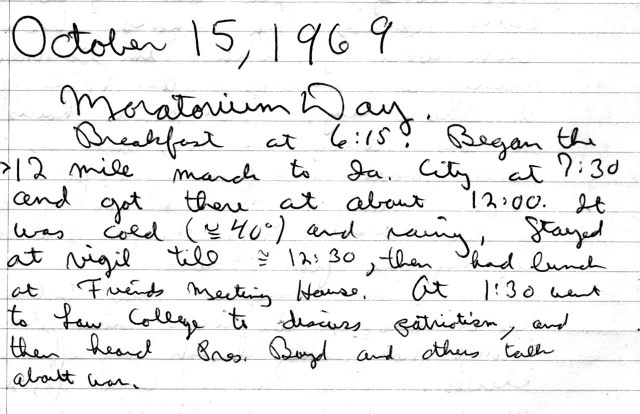 October 15, 1969
Moratorium Day.
Breakfast at 6:15. Began the
>12 mile march to Ia. City at 7:30
and got there at about 12:00. It
was cold (≅40°) and rainy, Stayed
at vigil till ≅ 12:30, then had lunch
at Friends Meeting House. At 1:30 went
to Law College to discuss patriotism, and
then heard Pres. Boyd and others talk
about war.